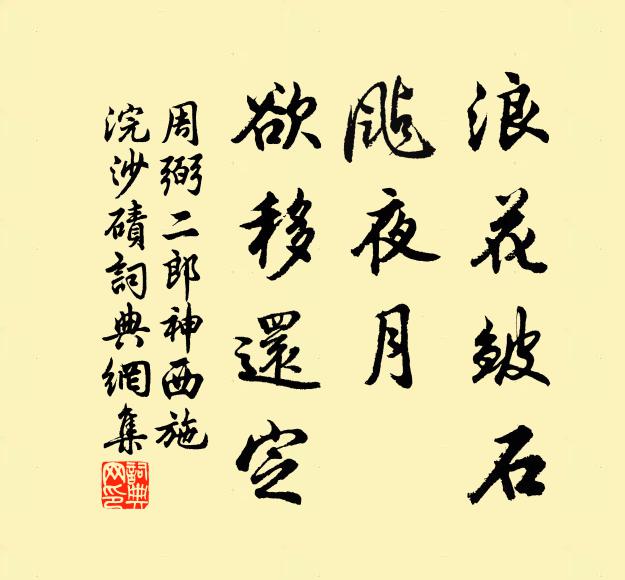 浪花皴石
颭夜月
欲移還定
周弼二郎神西施
浣沙磧詞典網集
詞典網印